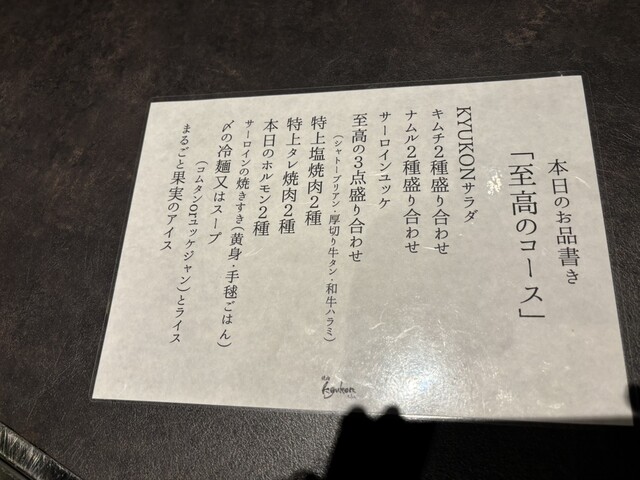 本日のお品書き
「至高のコース」
KYUKONサラダ
キムチ2種盛り合わせ
ナムル2種盛り合わせ
サーロインユッケ
至高の3点盛り合わせ
(シャトーブリアン・厚切り牛タン・和牛ハラミ)
特上塩焼肉2種
特上タレ焼肉2種
本日のホルモン2種
サーロインの焼きすき(黄身・手毬ごはん)
〆の冷麺又はスープ
(コムタンorユッケジャン)とライス
まるごと果実のアイス
kyukon